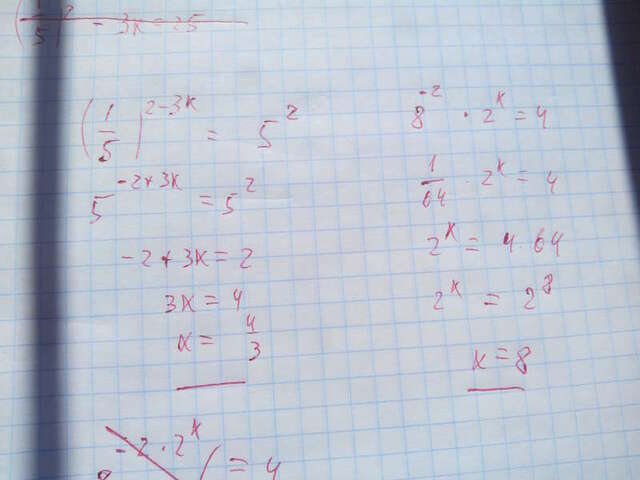 (1/5)^2 - 3x = 25
(1/5)^{2-3x} = 5^2
5^{-2+3x} = 5^2
-2+3x=2
3x=4
x=4/3
8^{-2} · 2^x = 4
1/64 · 2^x = 4
2^x = 4·64
2^x = 2^8
x=8
8^{-2·2^x} = 4